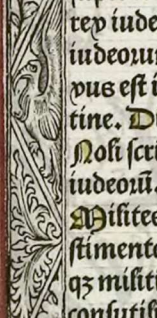 rex iude
iudeorum
pus est i
tine. D
Noli scri
iudeorū.
Milites
stimente
qȝ milit
consutib